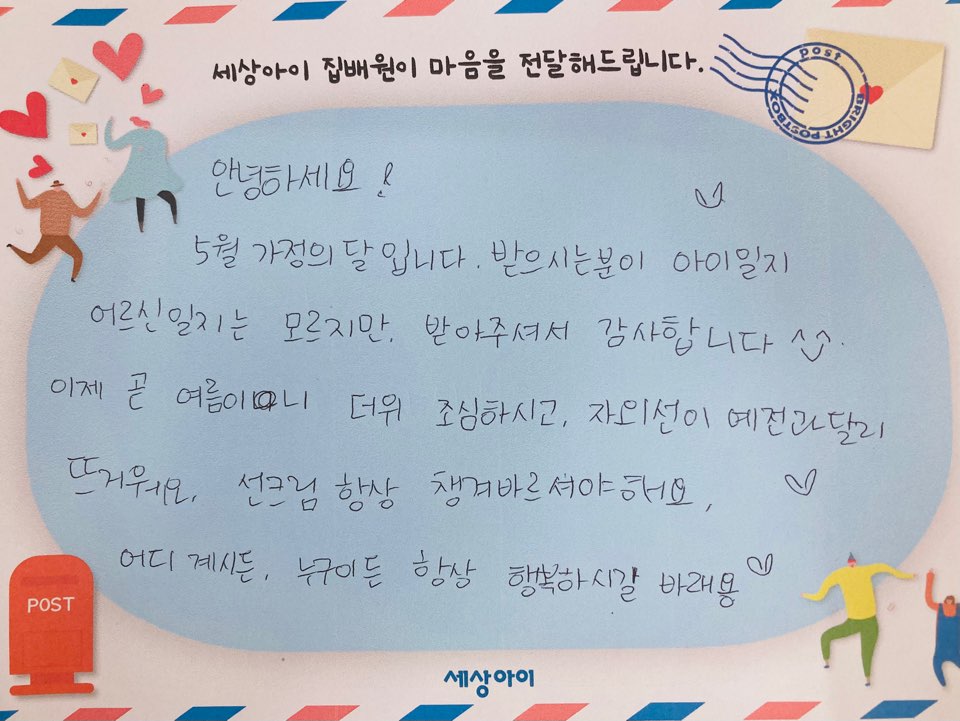 세상아이 집배원이 마음을 전달해드립니다.
POST
BRIGHT POSTBOX
안녕하세요!
5월 가정의 달 입니다. 받으시는분이 아이일지
어르신일지는 모르지만, 받아주셔서 감사합니다 ^^.
이제 곧 여름이오니 더위 조심하시고, 자외선이 예전과달리
뜨거워요, 선크림 항상 챙겨바르셔야해요,
어디 계시든, 누구이든 항상 행복하시길 바래용
POST
세상아이